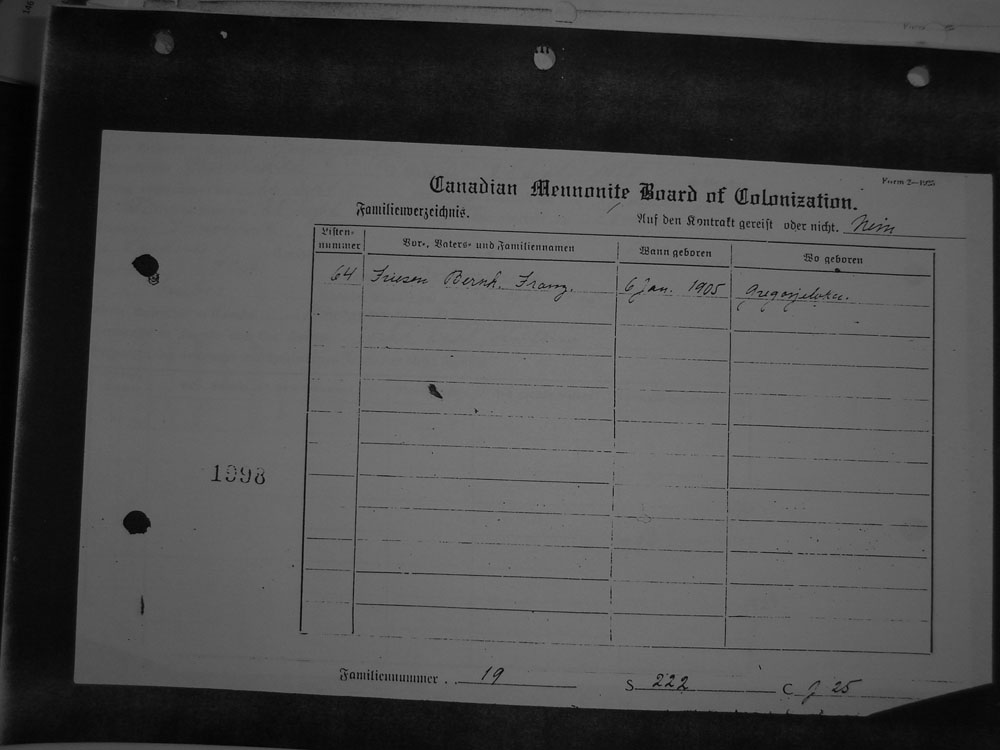 Form 2—1925
Canadian Mennonite Board of Colonization.
Familienverzeichnis.
Auf den Kontrakt gereist oder nicht. Nein
Listen-
nummer
Vor-, Vaters- und Familiennamen
Wann geboren
Wo geboren
64 Friesen Bernh. Franz. 6 Jan. 1905
1098
Familiennummer . 19 S 222 C J 25